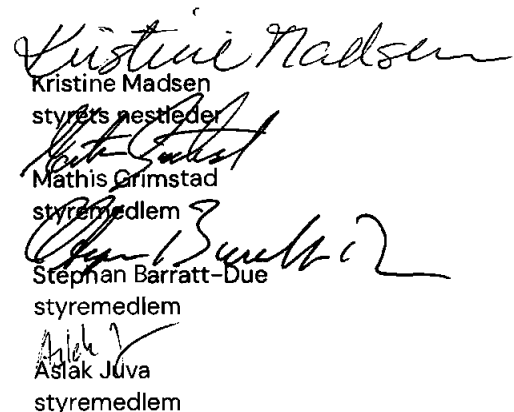 Kristine Madsen
Kristine Madsen
styrets nestleder
Mathis Grimstad
styremedlem
Stephan Barratt-Due
styremedlem
Aslak J
Aslak Juva
styremedlem